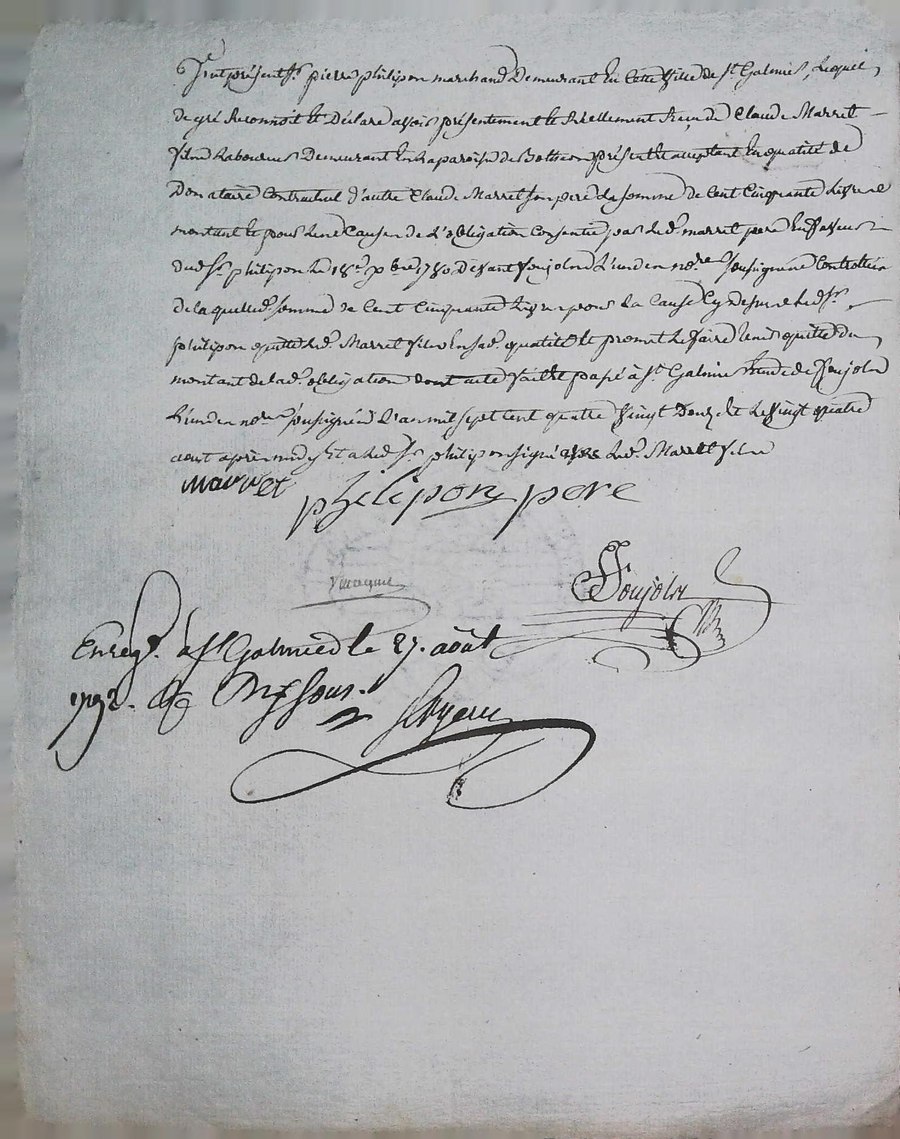 fut présent sr. pierre philipon marchand Demeurant En Cette Ville de st. Galmier, Lequel
de gré Reconnoit Et Déclare avoir présentement Et Réellement Reçu de Claude Marret
fils Laboureur Demeurant En La paroisse de présent Et acceptant En qualité de
Donataire Contractuel d'autre Claude Marret son pere La somme de Cent Cinquante Livres
montant Et pour Les Causes de L'obligation Consentie par Led. marret pere En faveur
dud. sr. philipon Le 18e. 1780. Devant Poujolas L'un des nores. soussignés Controllée
de laquelle somme de Cent Cinquante Livres pour La Cause Cy Dessus Led. sr.
philipon quitte Led. Marret fils En sad. qualité Et promet Le faire tenir quitte du
montant de lad. obligation dont acte fait Et passé à st. Galmier Etude de Poujolas
L'un des nores. soussignés L'an mil sept cent quatre vingt Douze Et Le vingt quatre
aout après midy Et a Led. sr. philipon signé avec Led. Marret fils
marret
philipon pere
Poujolas
Enregé. à st Galmier le 27. août
1792. sous.